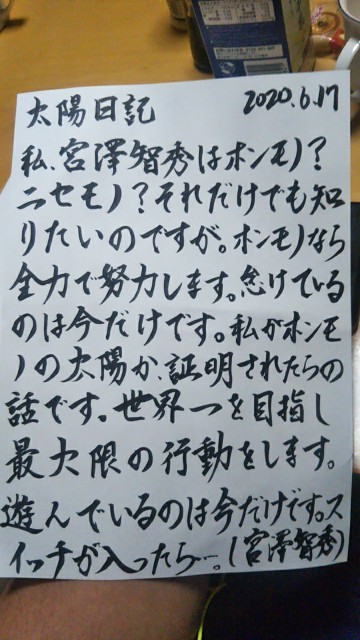 太陽日記 2020.6.17
私、宮澤智秀はホンモノ?
ニセモノ?それだけでも知
りたいのですが。ホンモノなら
全力で努力します。怠けている
のは今だけです。私がホンモ
ノの太陽か、証明されたらの
話です。世界一を目指し
最大限の行動をします。
遊んでいるのは今だけです。ス
イッチが入ったら…。(宮澤智秀)